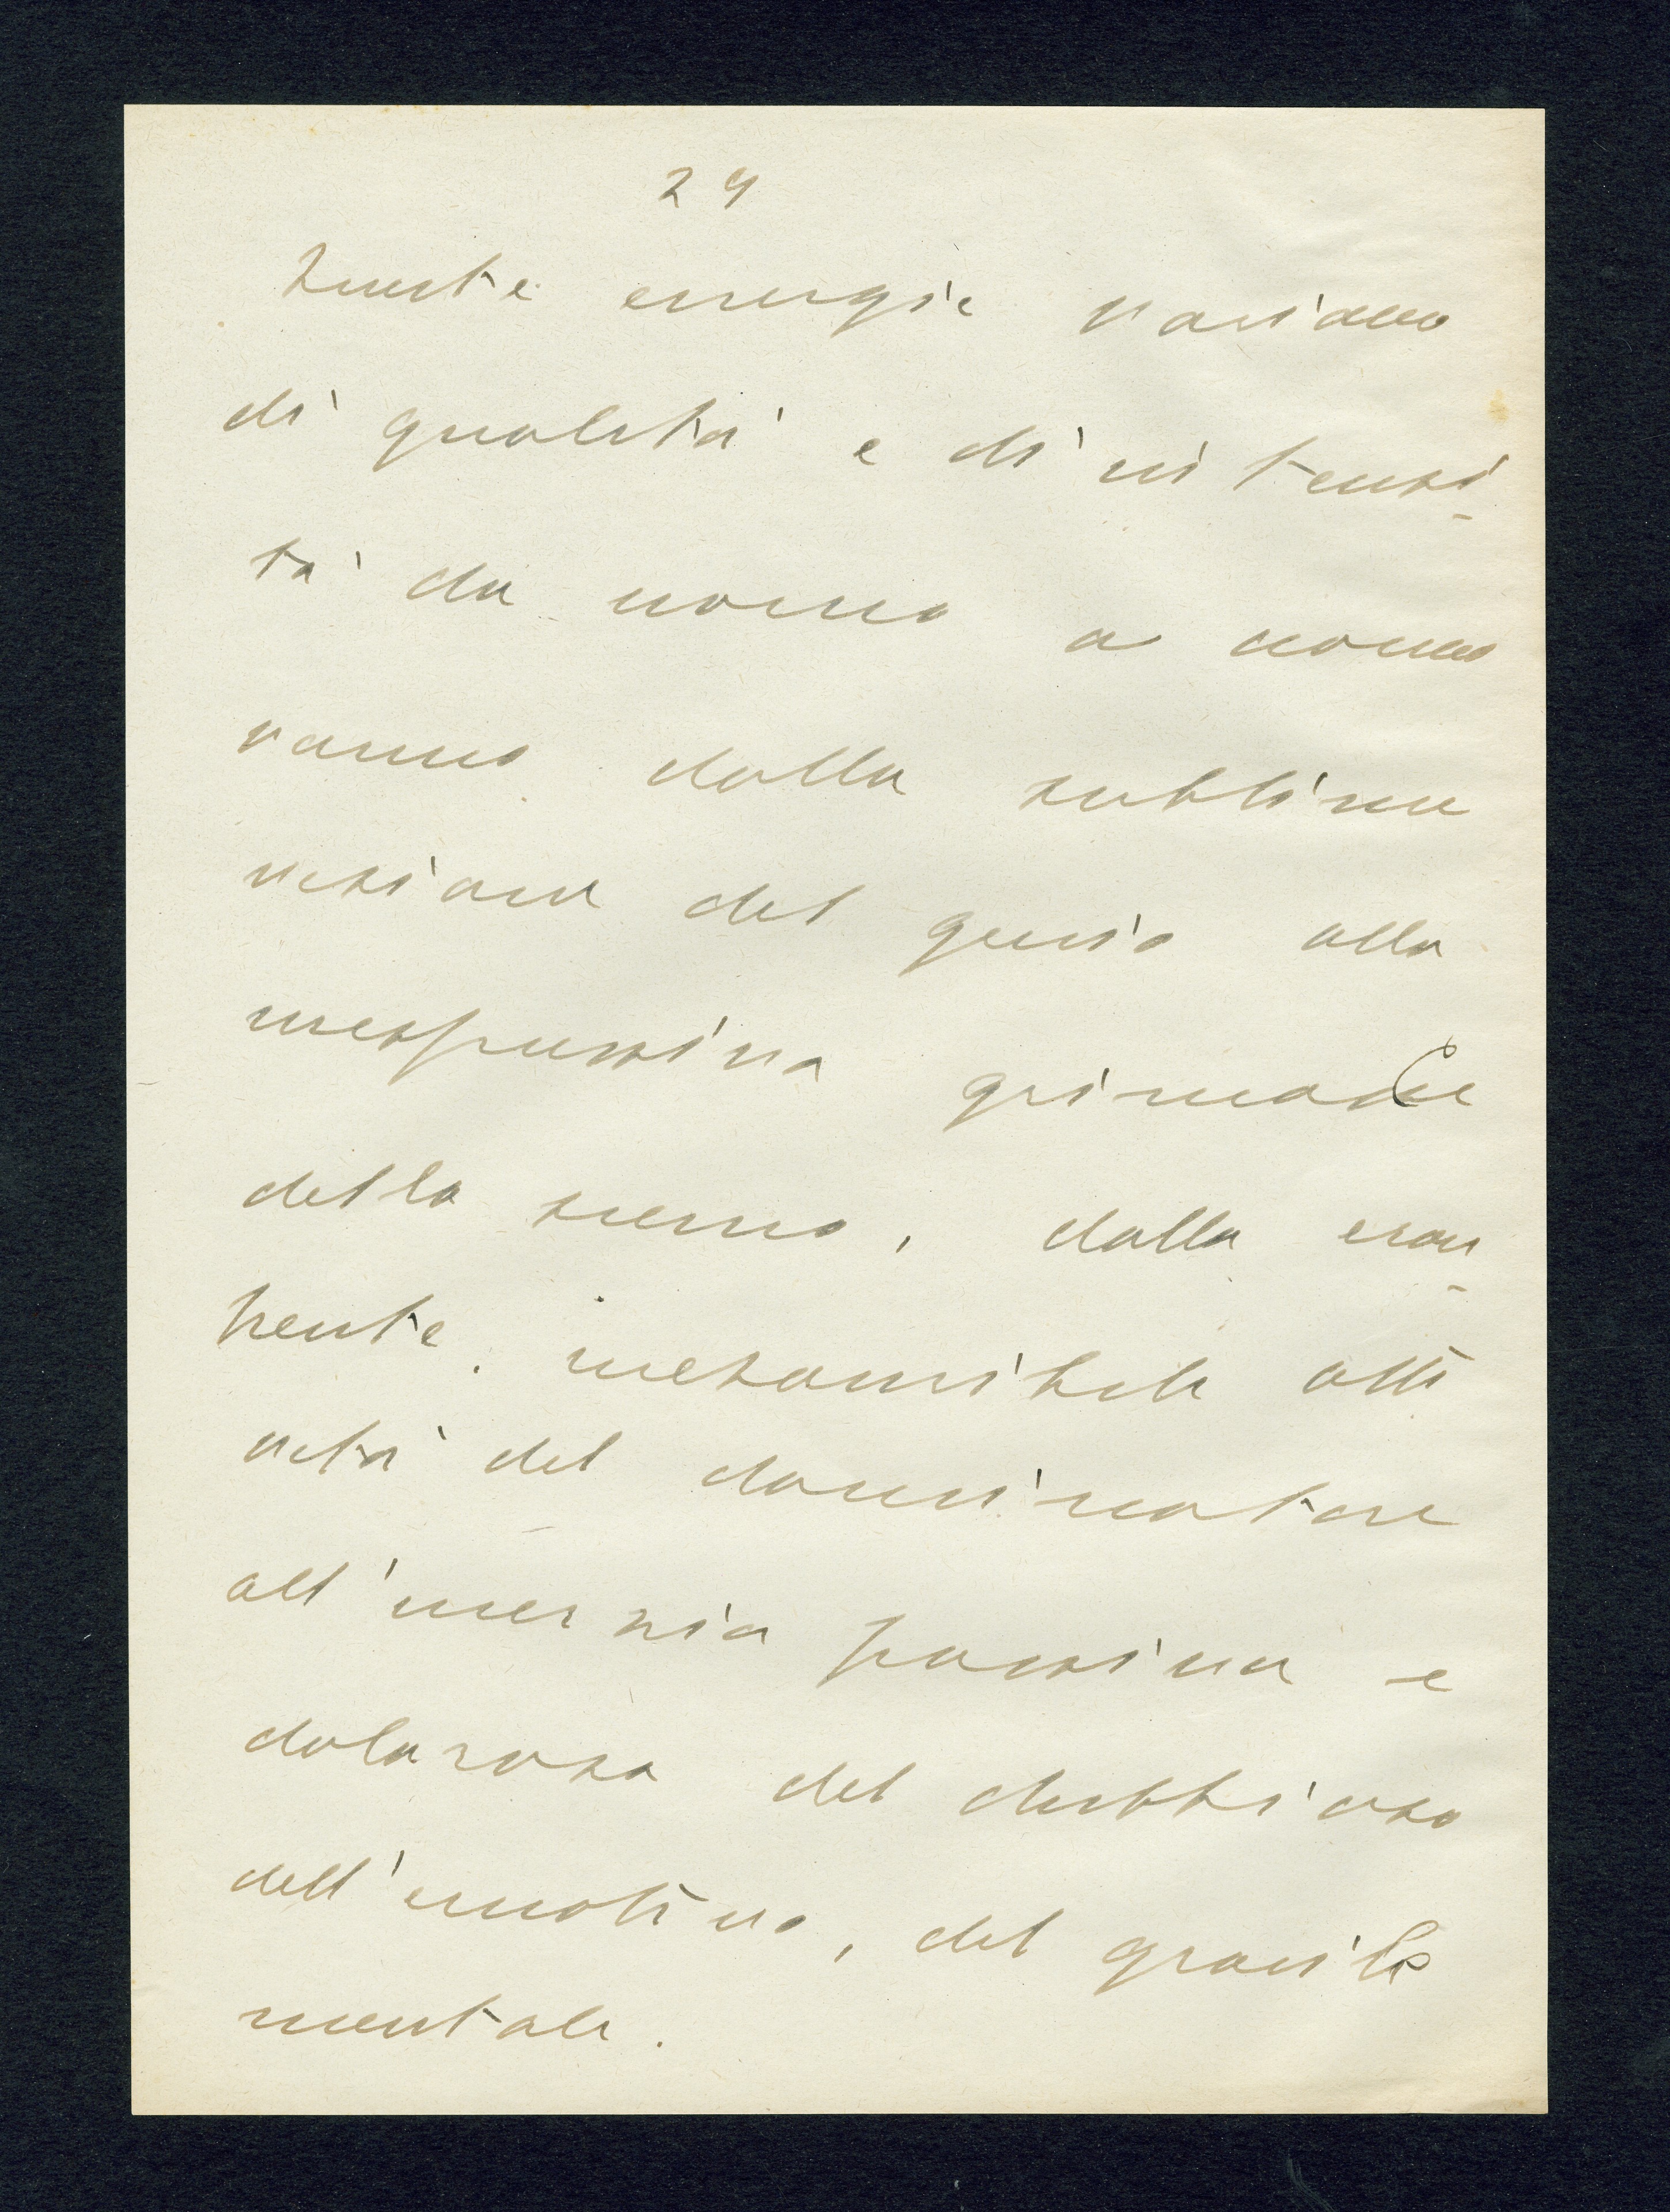 24
queste energie variano
di qualità e di intensi-
tà da uomo a uomo
vanno dalla sublime
visione del genio alla
inespressiva grimace
dello scemo, dalla erom-
pente inesauribile atti
vità del dominatore
all'inerzia passiva e
dolorosa del dubbioso
dell'emotivo, del gracile
mentale.